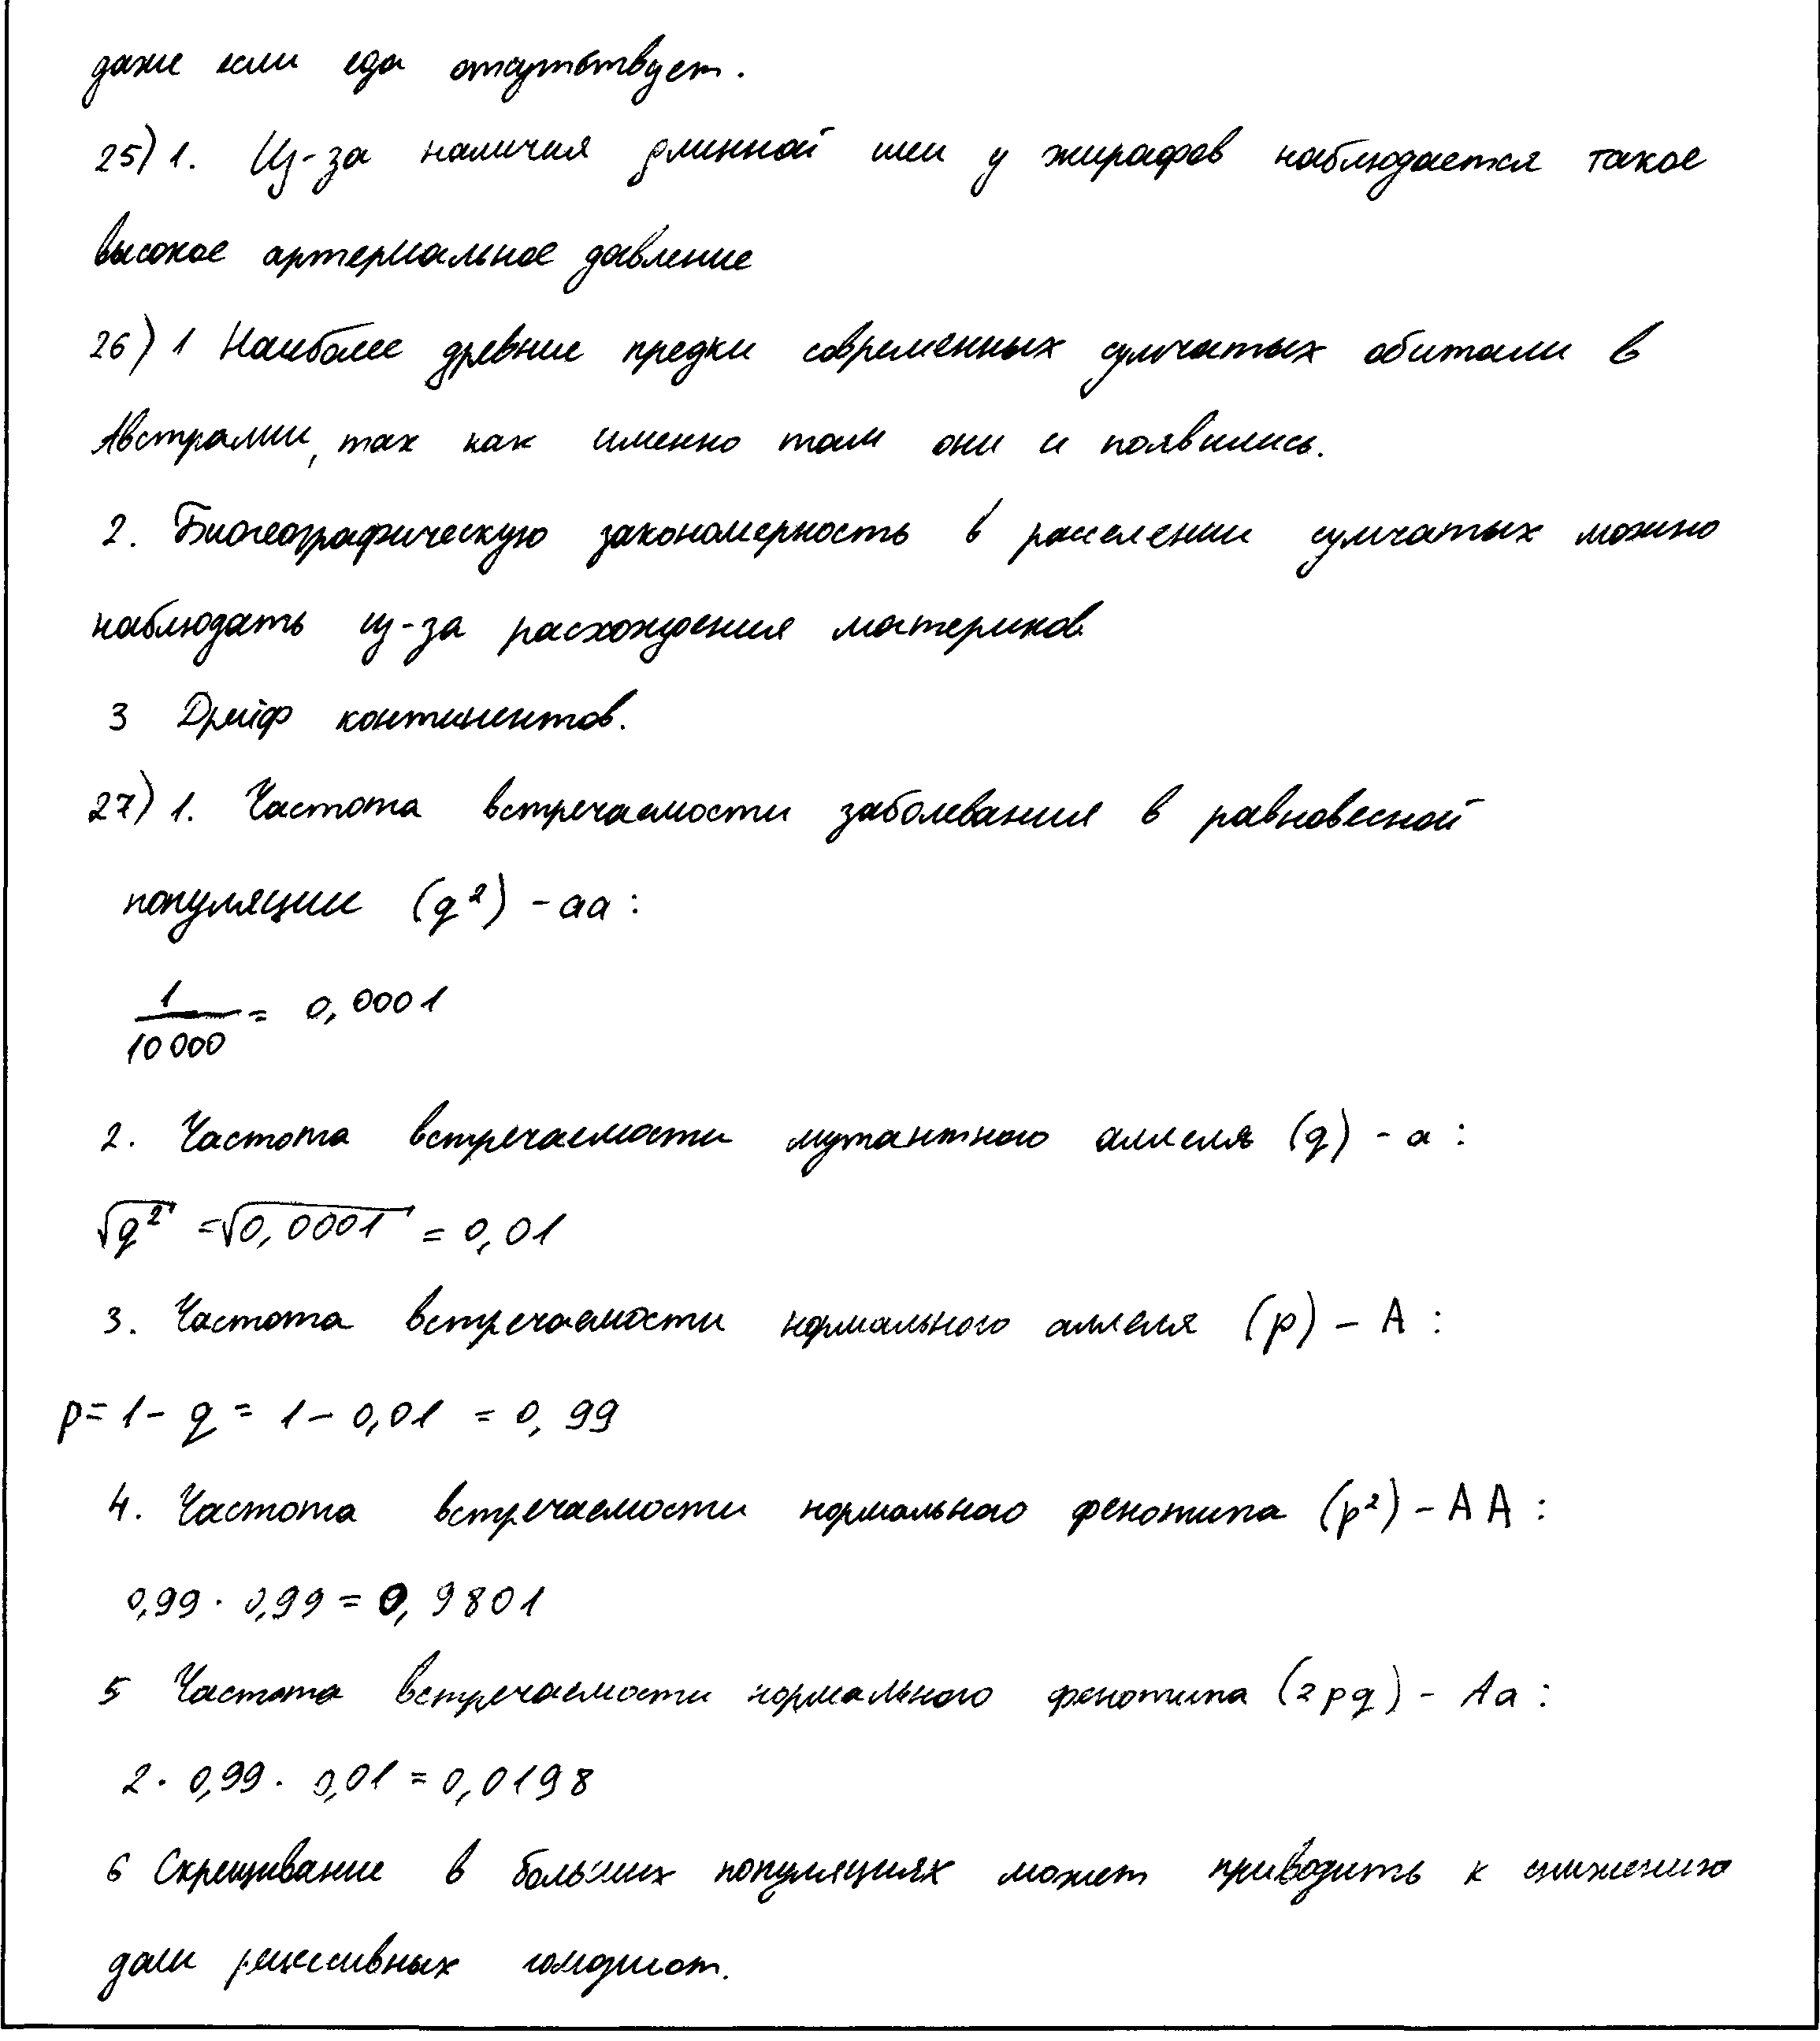 даже если еда отсутствует.
25) 1. Из-за наличия длинной шеи у жирафов наблюдается такое
высокое артериальное давление
26) 1 Наиболее древние предки современных сумчатых обитали в
Австралии, так как именно там они и появились.
2. Биогеографическую закономерность в расселении сумчатых можно
наблюдать из-за расхождения материков.
3 Дрейф континентов.
27) 1. Частота встречаемости заболевания в равновесной
популяции (q²) - aa:
1/10000 = 0,0001
2. Частота встречаемости мутантного аллеля (q) - a:
√q² = √0,0001 = 0,01
3. Частота встречаемости нормального аллеля (p) - A:
p = 1 - q = 1 - 0,01 = 0,99
4. Частота встречаемости нормального фенотипа (p²) - AA:
0,99 · 0,99 = 0,9801
5 Частота встречаемости нормального фенотипа (2pq) - Aa:
2 · 0,99 · 0,01 = 0,0198
6 Скрещивание в больших популяциях может приводить к снижению
доли рецессивных гомозигот.